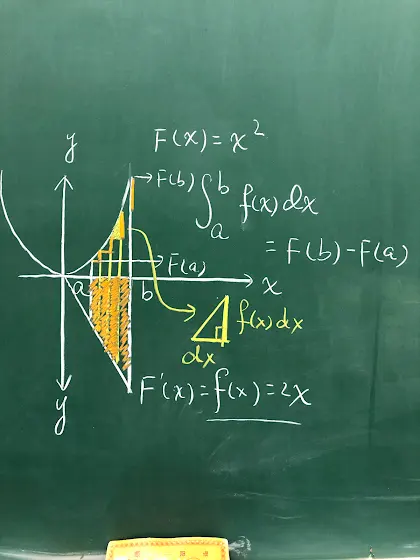 F(x) = x²
y
F(b)
∫ₐᵇ f(x) dx
= F(b) - F(a)
F(a)
a
b
x
f(x) dx
dx
F'(x) = f(x) = 2x
y